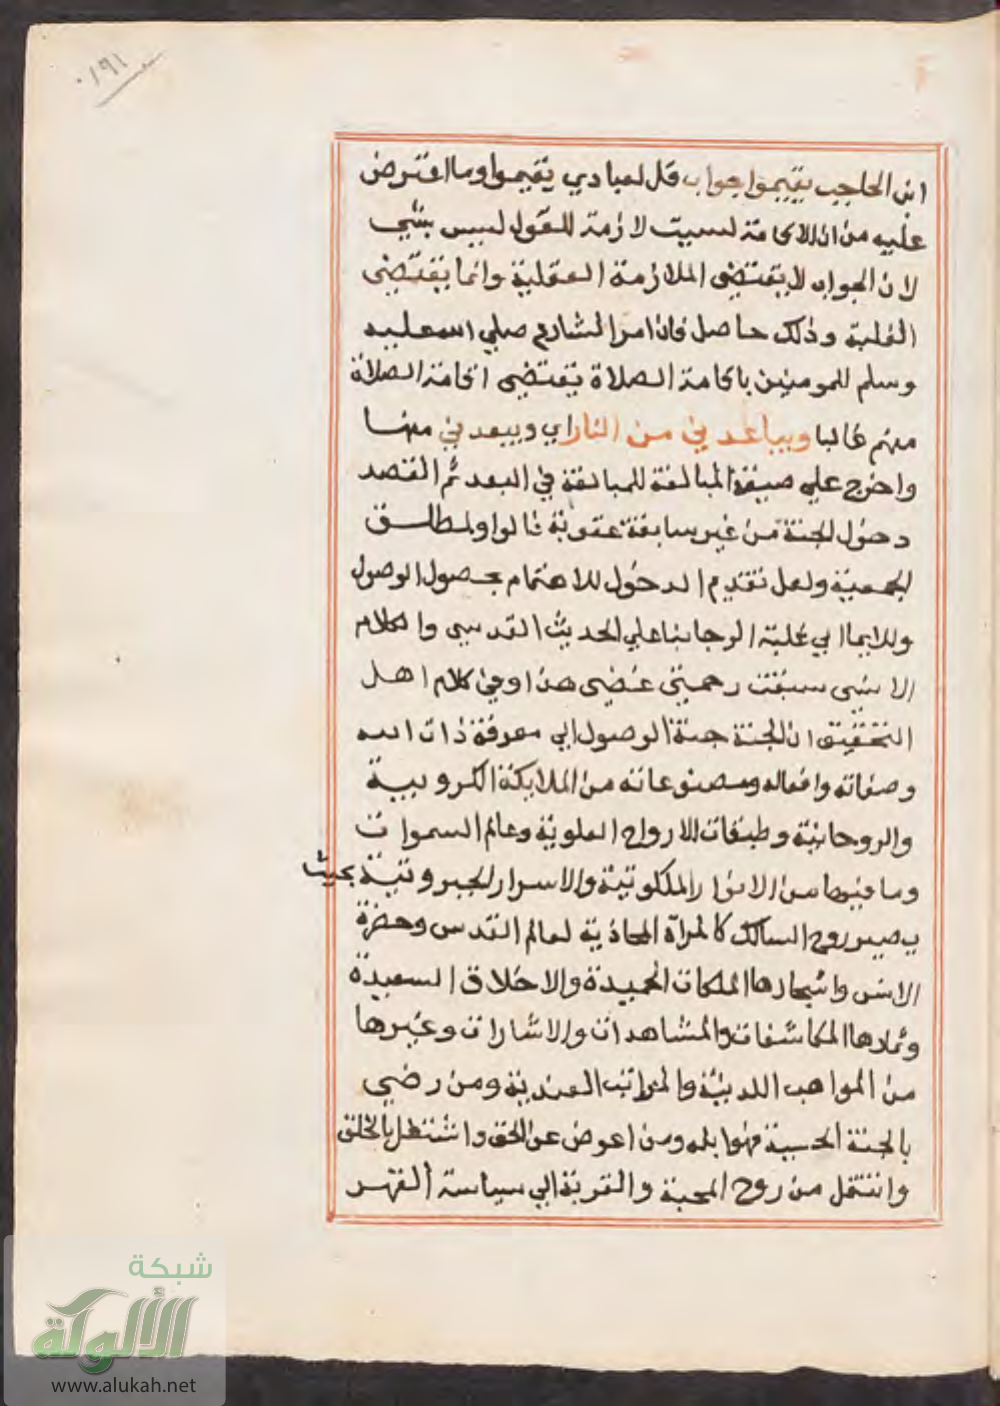 ١٩١
ابن الحاجب يقيموا جواب قل لعبادي يقيموا وما اعترض
عليه من ان الاقامة ليست لازمة للقول ليس بشي
لان الجواب لا يقتضى الملازمة العقلية وانما يقتضى
الغلبة وذلك حاصل فان امر الشارع صلى الله عليه
وسلم للمومنين باقامة الصلاة يقتضى اقامة الصلاة
منهم غالبا ويباعدني من النار اي ويبعدني منها
واخرج على صيغة المبالغة للمبالغة في البعد ثم القصد
دخول الجنة من غير سابقة عقوبة قالوا ولمطلق
الجمعية ولعل تقديم الدخول للاهتمام بحصول الوصول
وللايما الي غلبة الرجا بنا علي الحديث القدسي والكلام
الانسي سبقت رحمتي غضبي هذا وفي كلام اهل
التحقيق ان الجنة جنة الوصول الي معرفة ذات الله
وصفاته وافعاله ومصنوعاته من الملايكة الكروبية
والروحانية وطبقات الارواح العلوية وعالم السموات
وما فيها من الانوار الملكوتية والاسرار الجبروتية بحيث
يصير روح السالك كالمرآة المحاذية لعالم القدس وحضرة
الانس واشجارها الملكات الحميدة والاخلاق السعيدة
وثمارها المكاشفات والمشاهدات والاشارات وغيرها
من المواهب اللدنية والمراتب العندية ومن رضي
بالجنة الحسية فهو ابله ومن اعرض عن الحق واشتغل بالخلق
وانتقل من روح المحبة والقربة الي سياسة القهر
شبكة
الألوكة
www.alukah.net